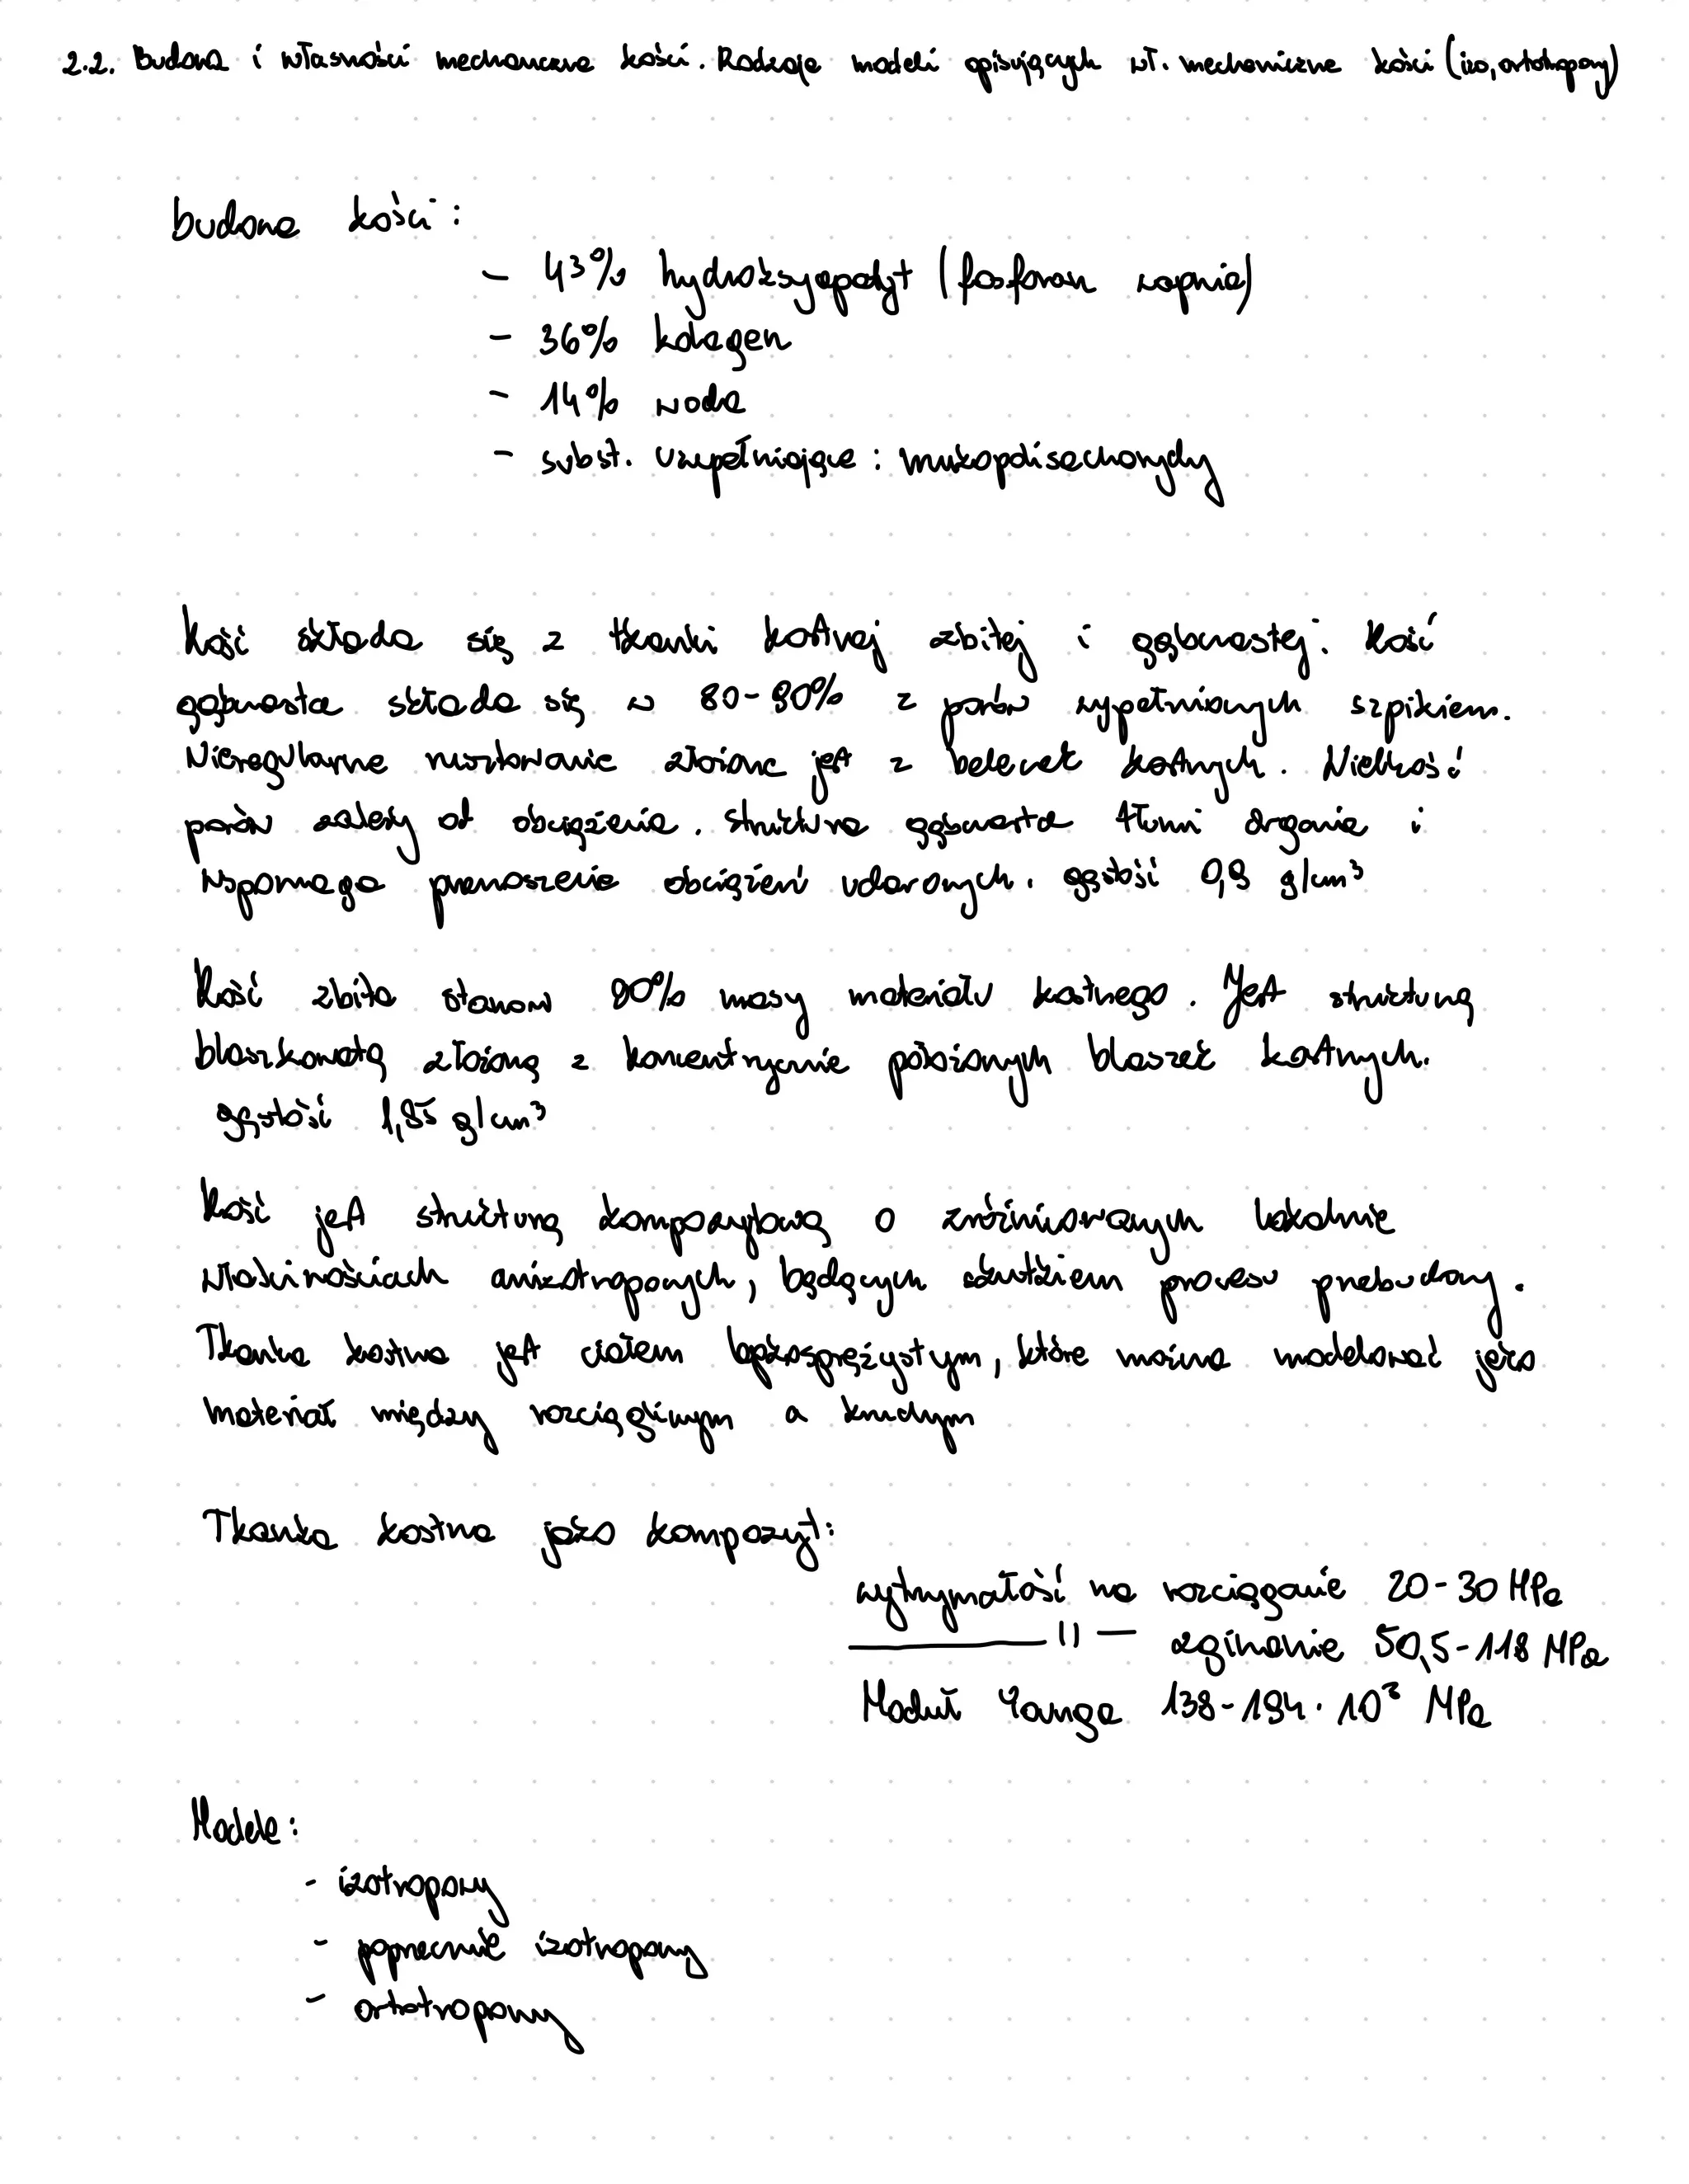 2.2. Budowa i własności mechaniczne kości. Rodzaje modeli opisujących wł. mechaniczne kości (izo, ortotropowy)
budowa kości:
- 43% hydroksyapatyt (fosforan wapnia)
- 36% kolagen
- 14% woda
- subst. uzupełniające: mukopolisacharydy
Kość składa się z tkanki kostnej zbitej i gąbczastej. Kość
gąbczasta składa się w 80-90% z porów wypełnionych szpikiem.
Nieregularne rusztowanie złożone jest z beleczek kostnych. Wielkość
porów zależy od obciążenia. Struktura gąbczasta tłumi drgania i
wspomaga przenoszenie obciążeń udarowych. gęstość 0,9 g/cm³
Kość zbita stanowi 80% masy materiału kostnego. Jest strukturą
blaszkowatą złożoną z koncentrycznie położonych blaszek kostnych.
gęstość 1,85 g/cm³
Kość jest strukturą kompozytową o zróżnicowanych lokalnie
właściwościach anizotropowych, będących skutkiem procesu przebudowy.
Tkanka kostna jest ciałem lepkosprężystym, które można modelować jako
materiał między rozciągliwym a kruchym
Tkanka kostna jako kompozyt:
wytrzymałość na rozciąganie 20-30 MPa
—— 11 — zginanie 50,5-118 MPa
Moduł Younga 138-194·10² MPa
Modele:
- izotropowy
- poprzecznie izotropowy
- ortotropowy